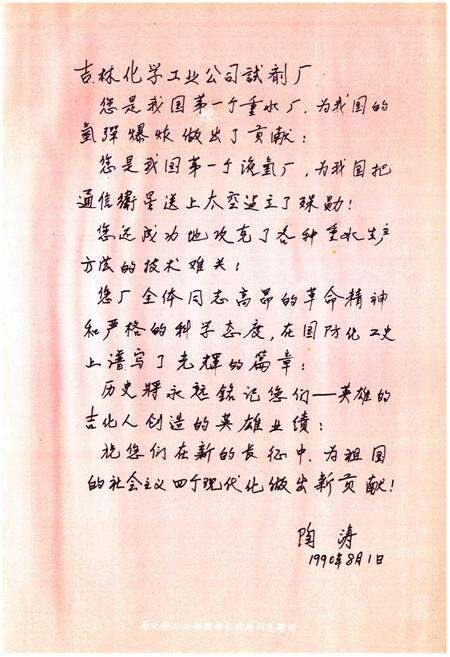 吉林化学工业公司試剤厂
您是我国第一个重水厂,为我国的
氢弹爆炸做出了贡献:
您是我国第一个液氢厂,为我国把
通信衛星送上太空建立了殊勋!
您还成为地攻克了各种重水生产
方法的技术难关:
您厂全体同志高昂的革命精神
和严格的科学态度,在国防化工史
上谱写了光辉的篇章:
历史將永远铭记您们——英雄的
吉化人创造的英雄业绩:
祝您们在新的长征中、为祖国
的社会主义四个现代化做出新贡献!
陶涛
1990年8月1日